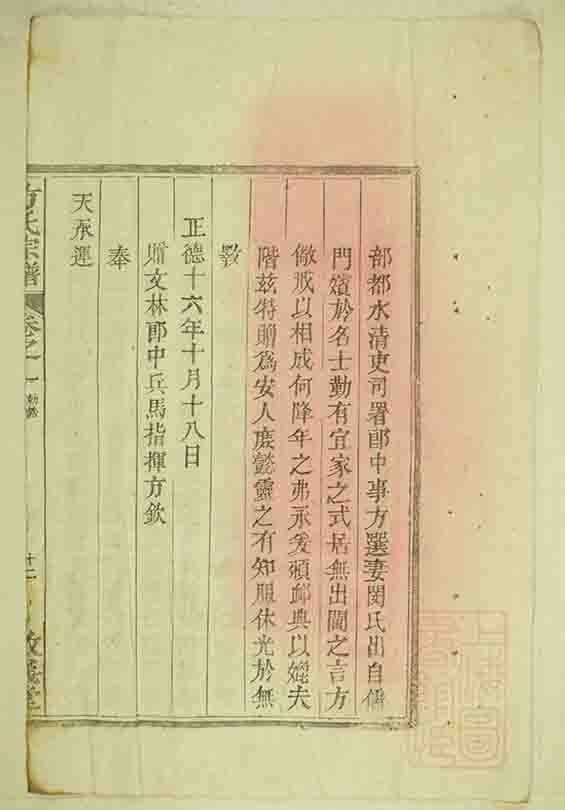 部都水清吏司署郎中事方選妻閔氏出自儒
門嬪於名士勤有宜家之式居無出閫之言方
儆戒以相成何降年之弗永爰頒卹典以媲夫
階茲特贈為安人庶懿靈之有知服休光於無
斁
正德十六年十月十八日
贈文林郎中兵馬指揮方欽
奉
天承運
方氏宗譜 卷之一